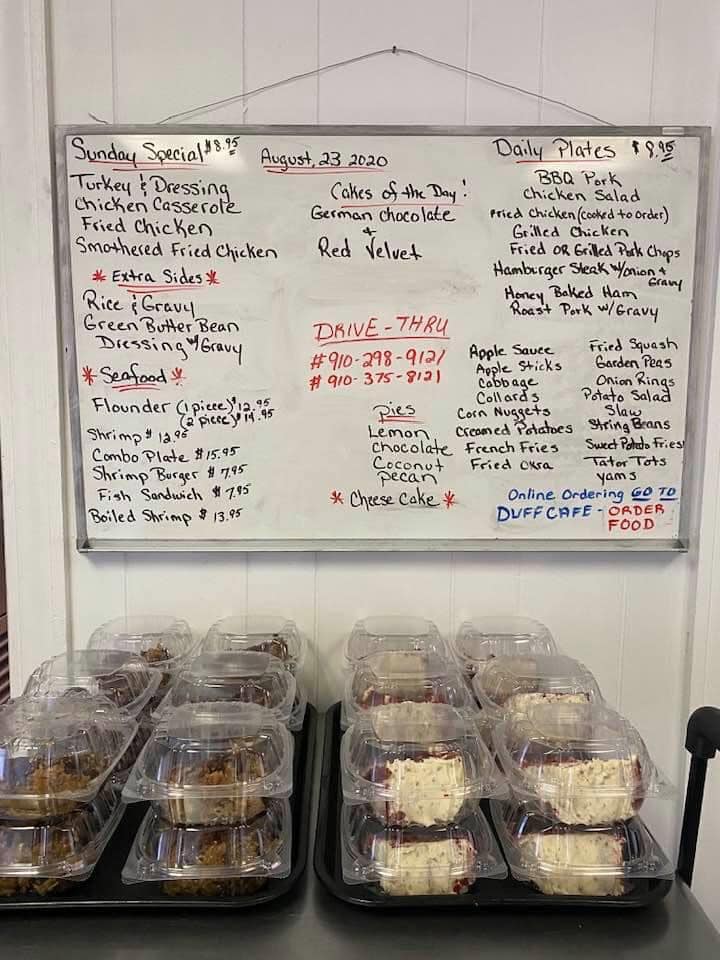 Sunday Special $8.95
Turkey & Dressing
Chicken Casserole
Fried Chicken
Smothered Fried Chicken
* Extra Sides *
Rice & Gravy
Green Butter Bean
Dressing w/ Gravy
* Seafood *
Flounder (1 piece) $12.95
(2 piece) $14.95
Shrimp $12.95
Combo Plate $15.95
Shrimp Burger $7.95
Fish Sandwich $7.95
Boiled Shrimp $13.95
August, 23 2020
Cakes of the Day!
German chocolate
&
Red Velvet
DRIVE-THRU
#910-298-9121
#910-375-8121
pies
Lemon
chocolate
Coconut
pecan
* Cheese Cake *
Daily Plates $8.95
BBQ Pork
Chicken Salad
Fried Chicken (cooked to order)
Grilled Chicken
Fried OR Grilled Pork Chops
Hamburger Steak w/onion &
Gravy
Honey Baked Ham
Roast Pork w/Gravy
Apple Sauce
Apple Sticks
Cabbage
Collards
Corn Nuggets
Creamed Potatoes
French Fries
Fried Okra
Fried Squash
Garden Peas
Onion Rings
Potato Salad
Slaw
String Beans
Sweet Potato Fries
Tator Tots
yams
Online Ordering GO TO
DUFFCAFE - ORDER
FOOD